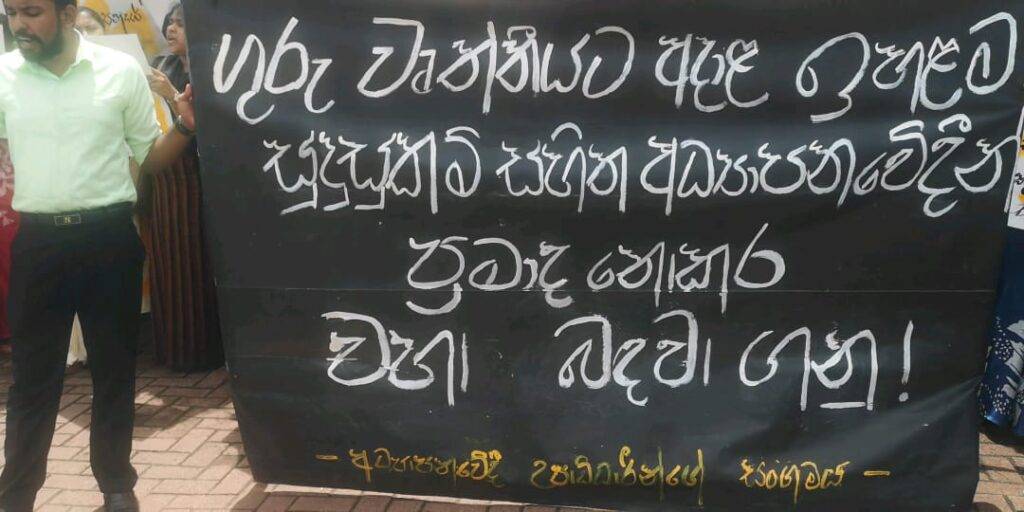 ගුරු වෘත්තියට අදාළ ඉහළම
සුදුසුකම් සහිත අධ්‍යාපනවේදීන්
ප්‍රමාද නොකර
වහා බඳවා ගනු!
- අධ්‍යාපනවේදී උපාධිධාරීන්ගේ සංගමය -